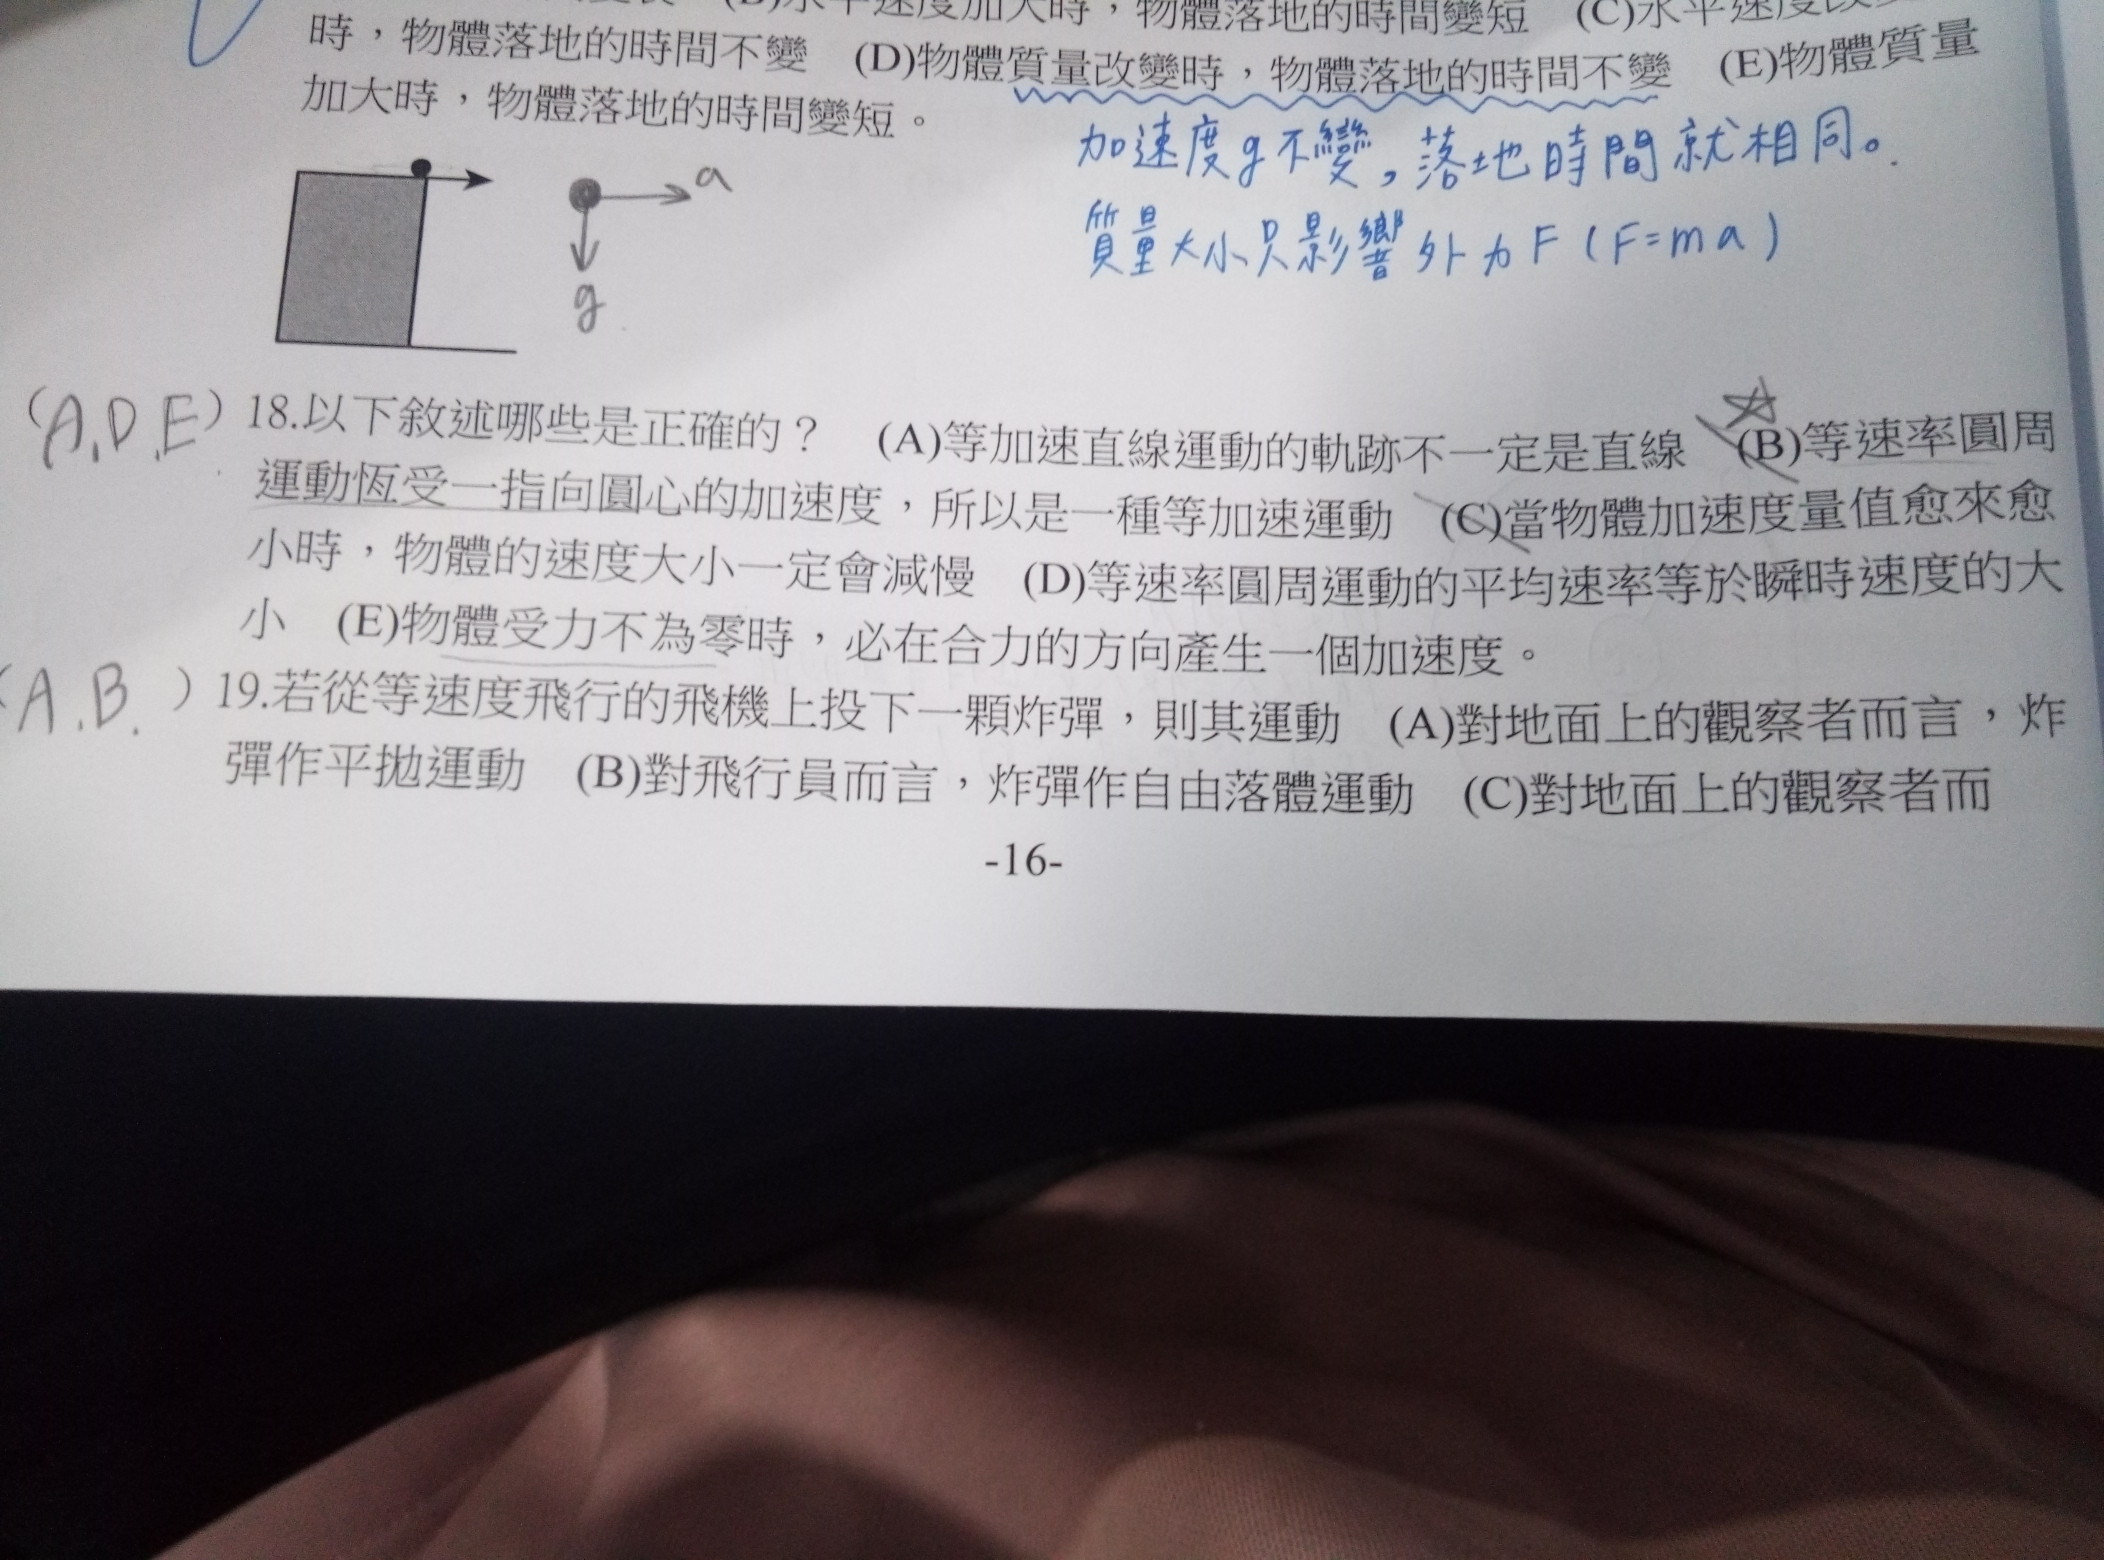 (B)水平速度加大時，物體落地的時間變短 (C)水平速度改
時，物體落地的時間不變 (D)物體質量改變時，物體落地的時間不變 (E)物體質量
加大時，物體落地的時間變短。
加速度g不變，落地時間就相同。
質量大小只影響外力F(F=ma)
a
g
(A.D.E) 18.以下敘述哪些是正確的？ (A)等加速直線運動的軌跡不一定是直線 (B)等速率圓周
運動恆受一指向圓心的加速度，所以是一種等加速運動 (C)當物體加速度量值愈來愈
小時，物體的速度大小一定會減慢 (D)等速率圓周運動的平均速率等於瞬時速度的大
小 (E)物體受力不為零時，必在合力的方向產生一個加速度。
(A.B.) 19.若從等速度飛行的飛機上投下一顆炸彈，則其運動 (A)對地面上的觀察者而言，炸
彈作平拋運動 (B)對飛行員而言，炸彈作自由落體運動 (C)對地面上的觀察者而
-16-